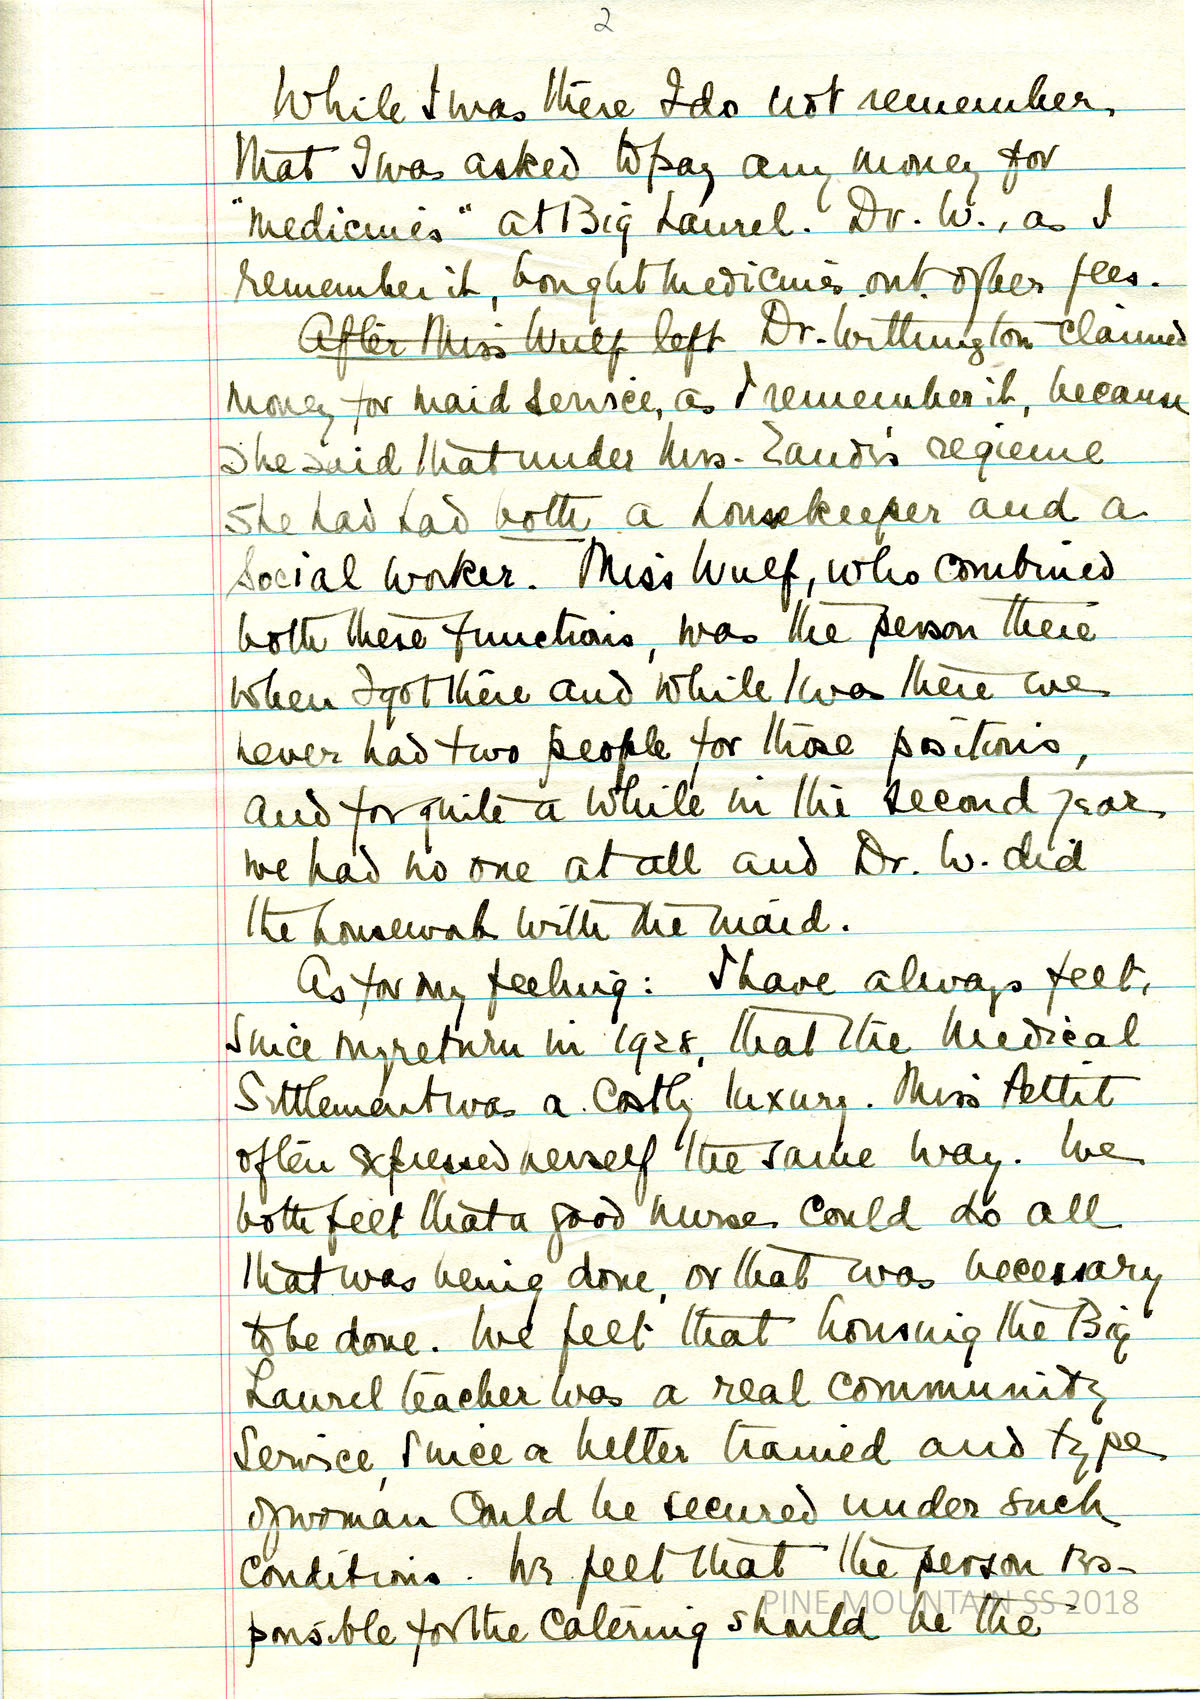 2
While I was there I do not remember,
that I was asked to pay any money for
"medicines" at Big Laurel. Dr. W., as I
remember it, bought medicines out of her fees.
After Miss Wulf left Dr. Withington claimed
money for maid service, as I remember it, because
she said that under Mrs. Zande's regieme
she had had both a housekeeper and a
social worker. Miss Wulf, who combined
both these functions, was the person there
when I got there and while I was there we
never had two people for those positions,
and for quite a while in the second year
we had no one at all and Dr. W. did
the housework with the maid.
As for my feeling: I have always felt,
since my return in 1928, that the Medical
Settlement was a costly luxury. Miss Pettit
often expressed herself the same way. We
both felt that a good nurse could do all
that was being done, or that was necessary
to be done. We felt that housing the Big
Laurel teacher was a real community
service, since a better trained and type
of woman could be secured under such
conditions. We felt that the person res-
ponsible for the catering should be the
PINE MOUNTAIN SS 2018